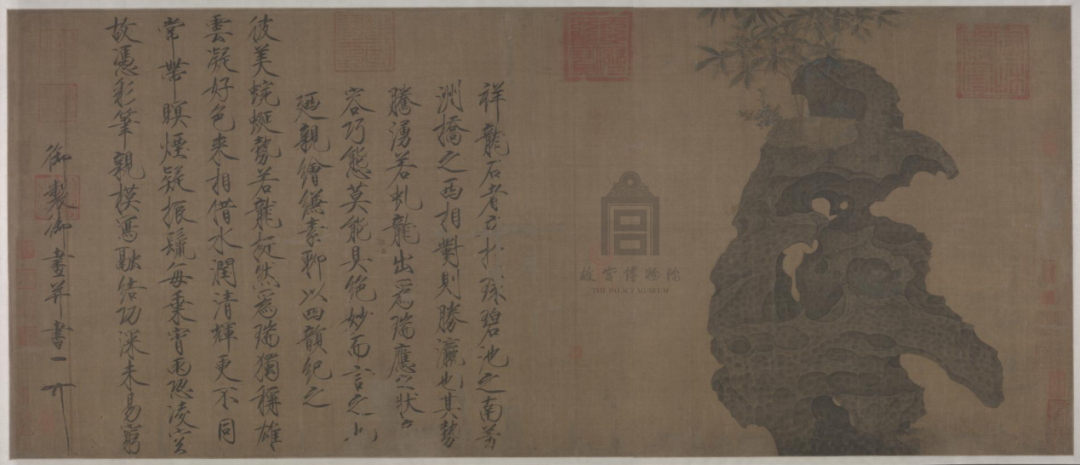 祥龍石者立於環碧池之南芳
洲橋之西相對則勝瀛也其勢
騰湧若虬龍出為瑞應之狀奇
容巧態莫能具絕妙而言之也
廼親繪縑素聊以四韻紀之
彼美蜿蜒勢若龍挺然為瑞獨稱雄
雲凝好色來相借水潤清輝更不同
常帶暝煙疑振鬣每乘宵雨恐凌空
故憑彩筆親模寫融結功深未易窮
御製御畫并書
故宮博物院
THE PALACE MUSEUM